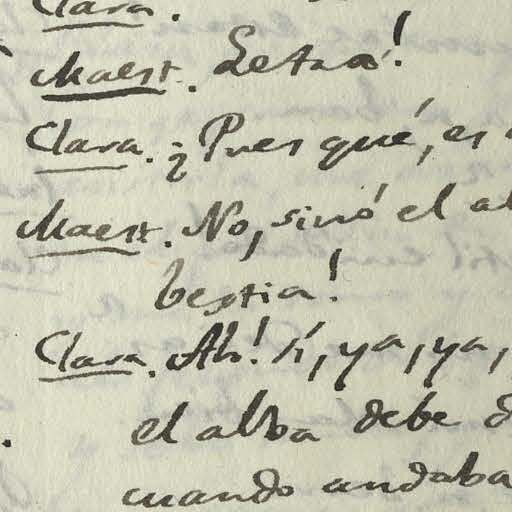 Clara.
Maest. Letra!
Clara. ¿Pues qué, es
Maest. No, sinó el al
bestia!
Clara. Ah! sí, ya, ya,
el alba debe d
cuando andaba